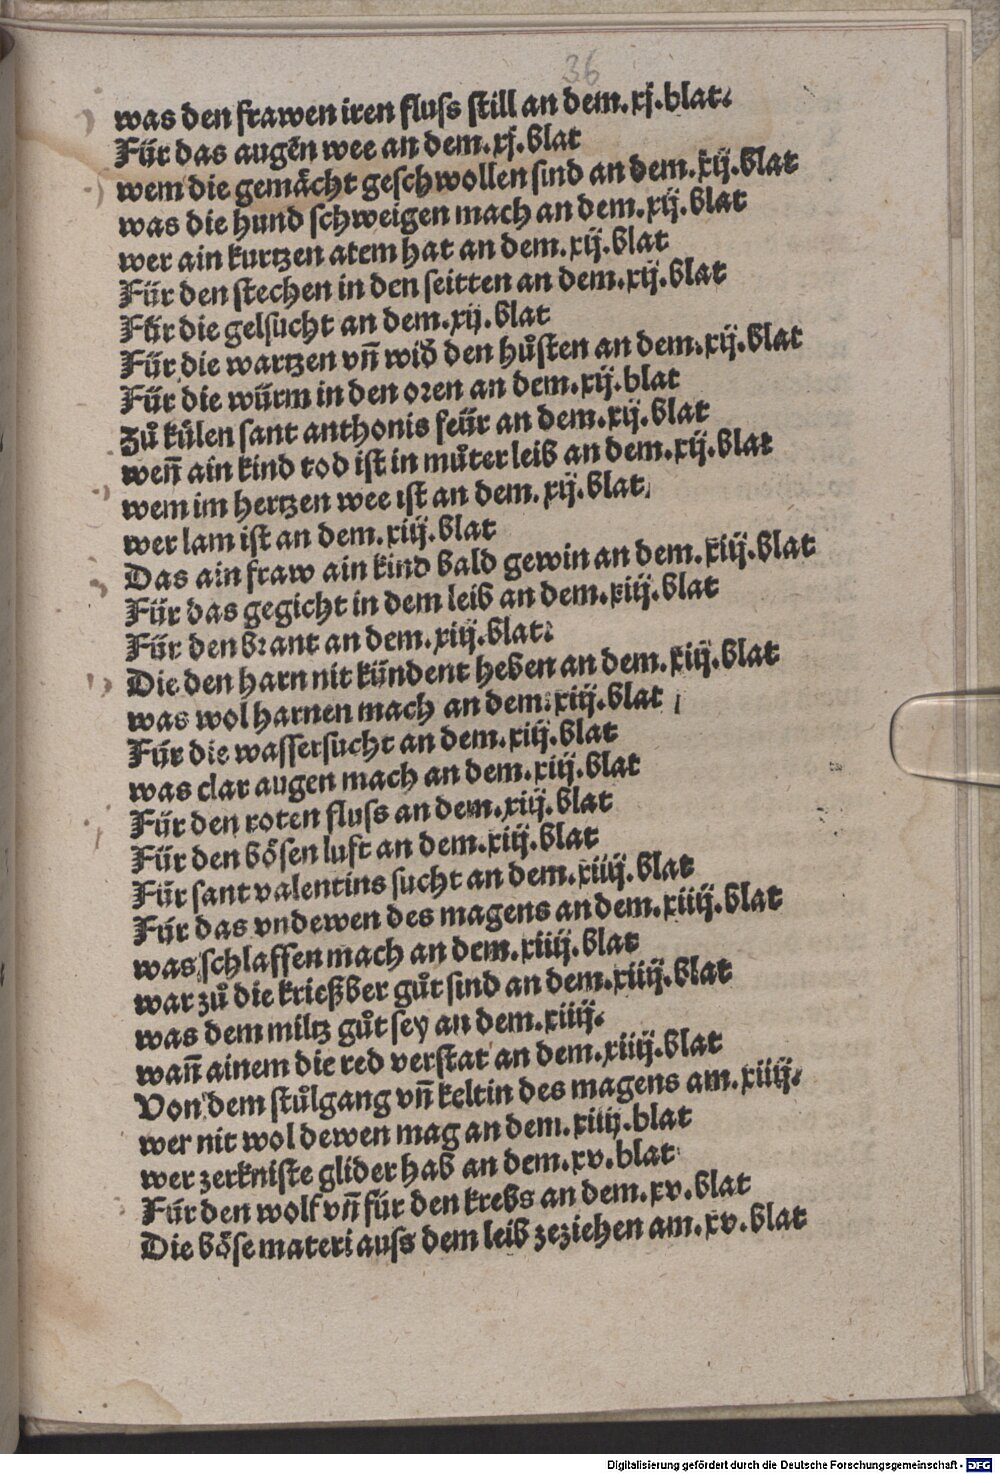 36
was den frawen iren fluss still an dem.xj.blat.
Für das augen̄ wee an dem.xj.blat
wem die gemächt geschwollen sind an dem.xij.blat
was die hund schweigen mach an dem.xij.blat
wer ain kurtzen atem hat an dem.xij.blat
Für den stechen in den seitten an dem.xij.blat
Für die gelsucht an dem.xij.blat
Für die wartzen vn̄ wid̄ den hůsten an dem.xij.blat
Für die würm in den oren an dem.xij.blat
Zů kůlen sant anthonis feür an dem.xij.blat
wen̄ ain kind tod ist in můter leib an dem.xij.blat
wem im hertzen wee ist an dem.xij.blat
wer lam ist an dem.xiij.blat
Das ain fraw ain kind bald gewin an dem.xiij.blat
Für das gegicht in dem leib an dem.xiij.blat
Für den brant an dem.xiij.blat.
Die den harn nit kündent heben an dem.xiij.blat
was wol harnen mach an dem.xiij.blat
Für die wassersucht an dem.xiij.blat
was clar augen mach an dem.xiij.blat
Für den roten fluss an dem.xiij.blat
Für den bösen luft an dem.xiij.blat
Für sant valentins sucht an dem.xiiij.blat
Für das vndewen des magens an dem.xiiij.blat
was schlaffen mach an dem.xiiij.blat
war zů die krießber gůt sind an dem.xiiij.blat
was dem miltz gůt sey an dem.xiiij.
wan̄ ainem die red verstat an dem.xiiij.blat
Von dem stůlgang vn̄ keltin des magens am.xiiij.
wer nit wol dewen mag an dem.xiiij.blat
wer zerkniste glider hab an dem.xv.blat
Für den wolf vn̄ für den krebs an dem.xv.blat
Die böse materi auss dem leib zeziehen am.xv.blat
Digitalisierung gefördert durch die Deutsche Forschungsgemeinschaft - DFG